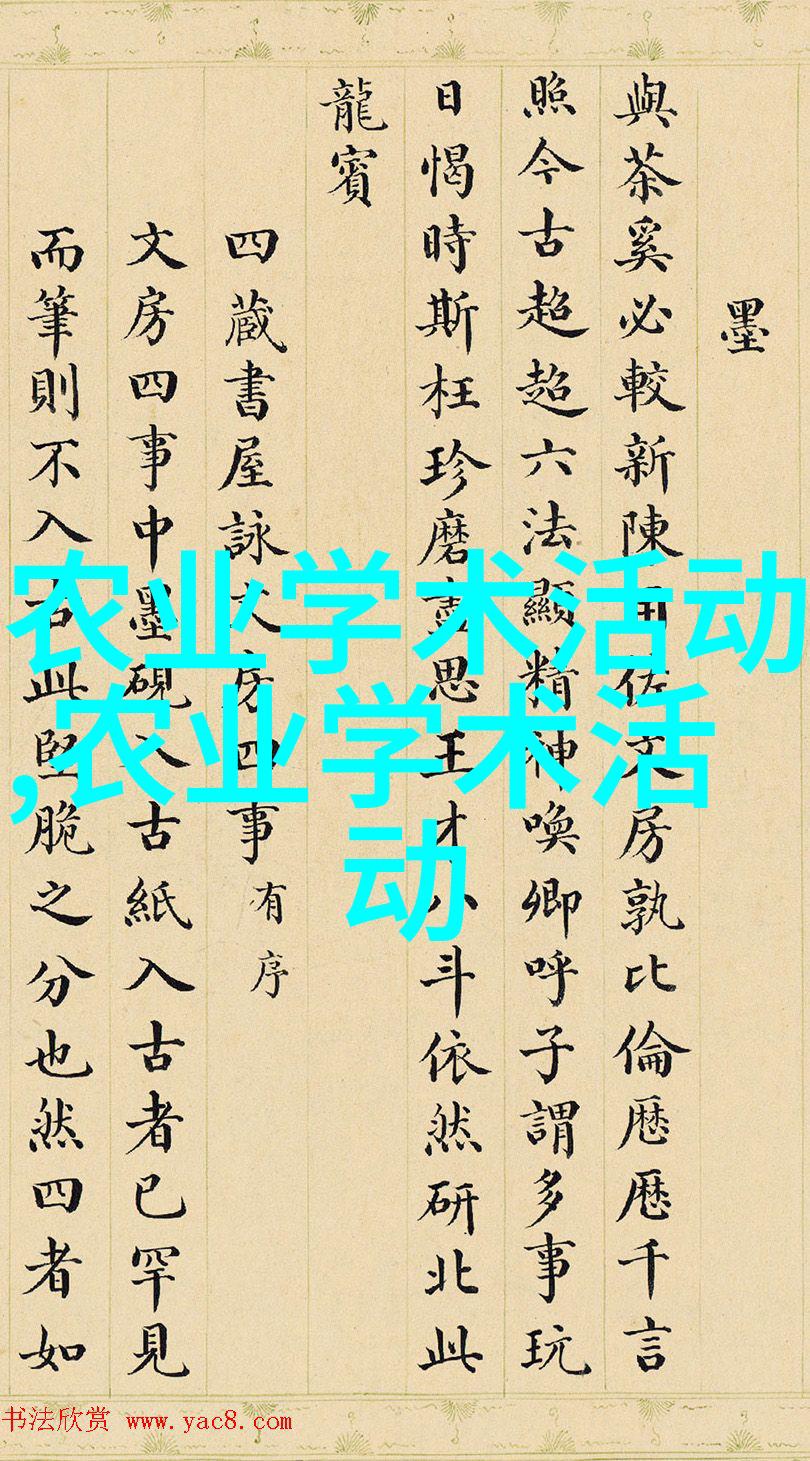 墨
與茶奚必較新陳用佐文房孰比倫歷歷千言
照今古超超六法顯精神喚卿呼子謂多事玩
日愒時斯枉珍磨盡思王才八斗依然研北此
龍賓
四蔵書屋詠文房四事有序
文房四事中墨硯入古紙入古者已罕見
而筆則不入古此堅脆之分也然四者如
农业学术活动
,农业学术活
动
书法欣赏 www.yac8.com